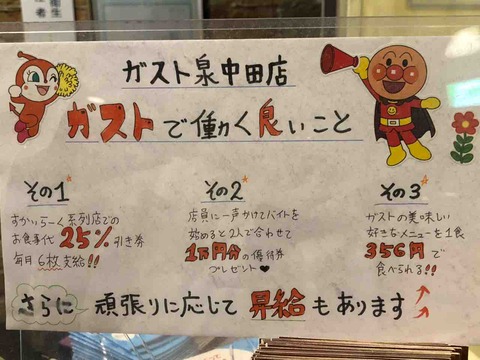 ガスト泉中田店
ガストで働く良いこと
その1
すかいらーく系列店での
お食事代25%引き券
毎月6枚支給!!
その2
店員に一声かけてバイトを
始めると2人で合わせて
1万円分の優待券
プレゼント♥
その3
ガストの美味しい
好きなメニューを1食
356円で
食べられる!!
さらに 頑張りに応じて昇給もあります